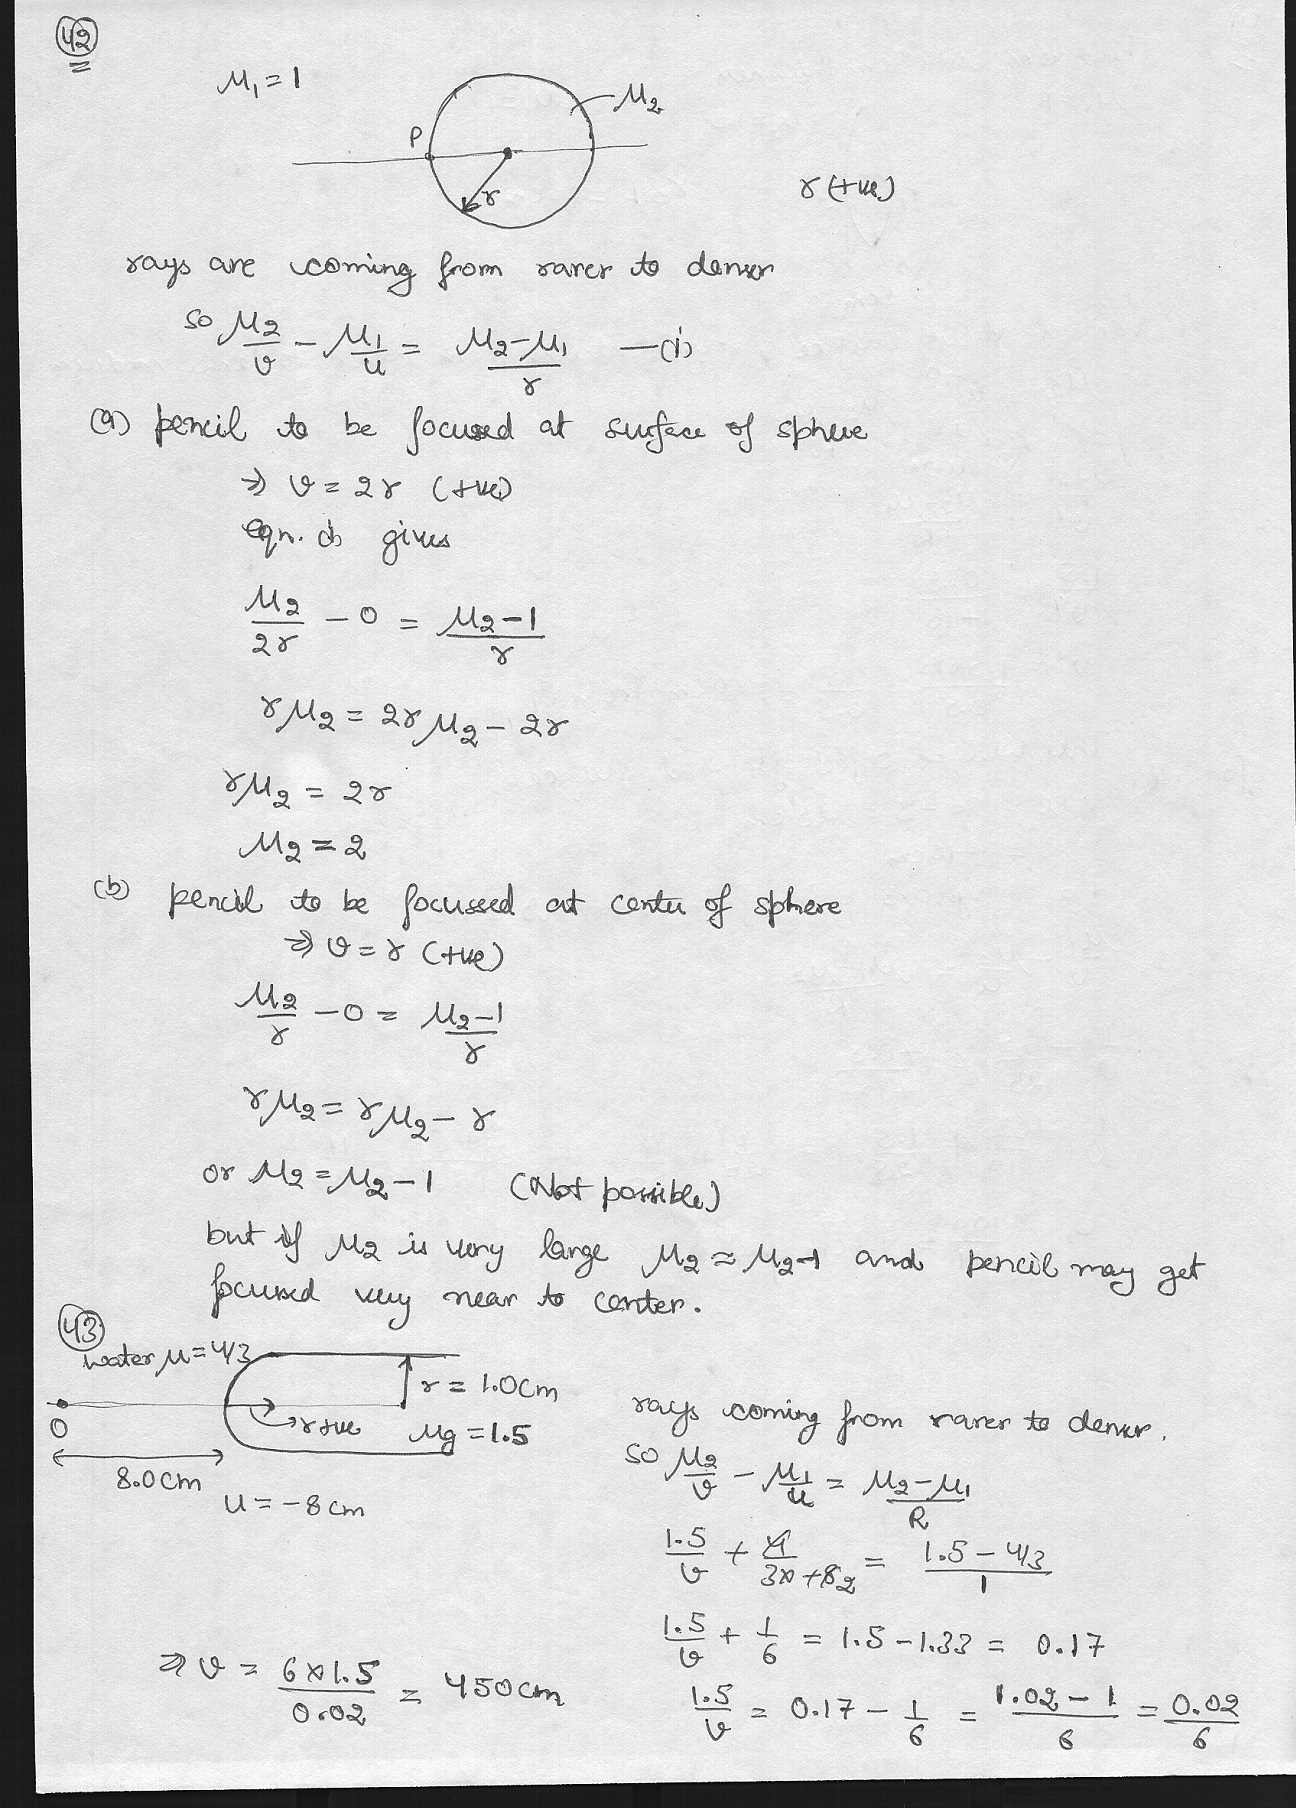 42
μ₁ = 1
μ₂
P
r
r (+ve)
rays are coming from rarer to denser
so μ₂/v - μ₁/u = (μ₂-μ₁)/r —(i)
(a) pencil to be focused at surface of sphere
⇒ v = 2r (+ve)
eqn. (i) gives
μ₂/2r - 0 = (μ₂-1)/r
rμ₂ = 2rμ₂ - 2r
rμ₂ = 2r
μ₂ = 2
(b) pencil to be focussed at center of sphere
⇒ v = r (+ve)
μ₂/r - 0 = (μ₂-1)/r
rμ₂ = rμ₂ - r
or μ₂ = μ₂ - 1 (Not possible)
but if μ₂ is very large μ₂ ≈ μ₂-1 and pencil may get
focused very near to center.
43
water μ = 4/3
r = 1.0cm
r +ve
μg = 1.5
O
8.0cm
u = -8cm
rays coming from rarer to denser.
so μ₂/v - μ₁/u = (μ₂-μ₁)/R
1.5/v + 4/(3×+8₂) = (1.5-4/3)/1
1.5/v + 1/6 = 1.5-1.33 = 0.17
1.5/v = 0.17 - 1/6 = (1.02-1)/6 = 0.02/6
⇒ v = (6×1.5)/0.02 = 450cm